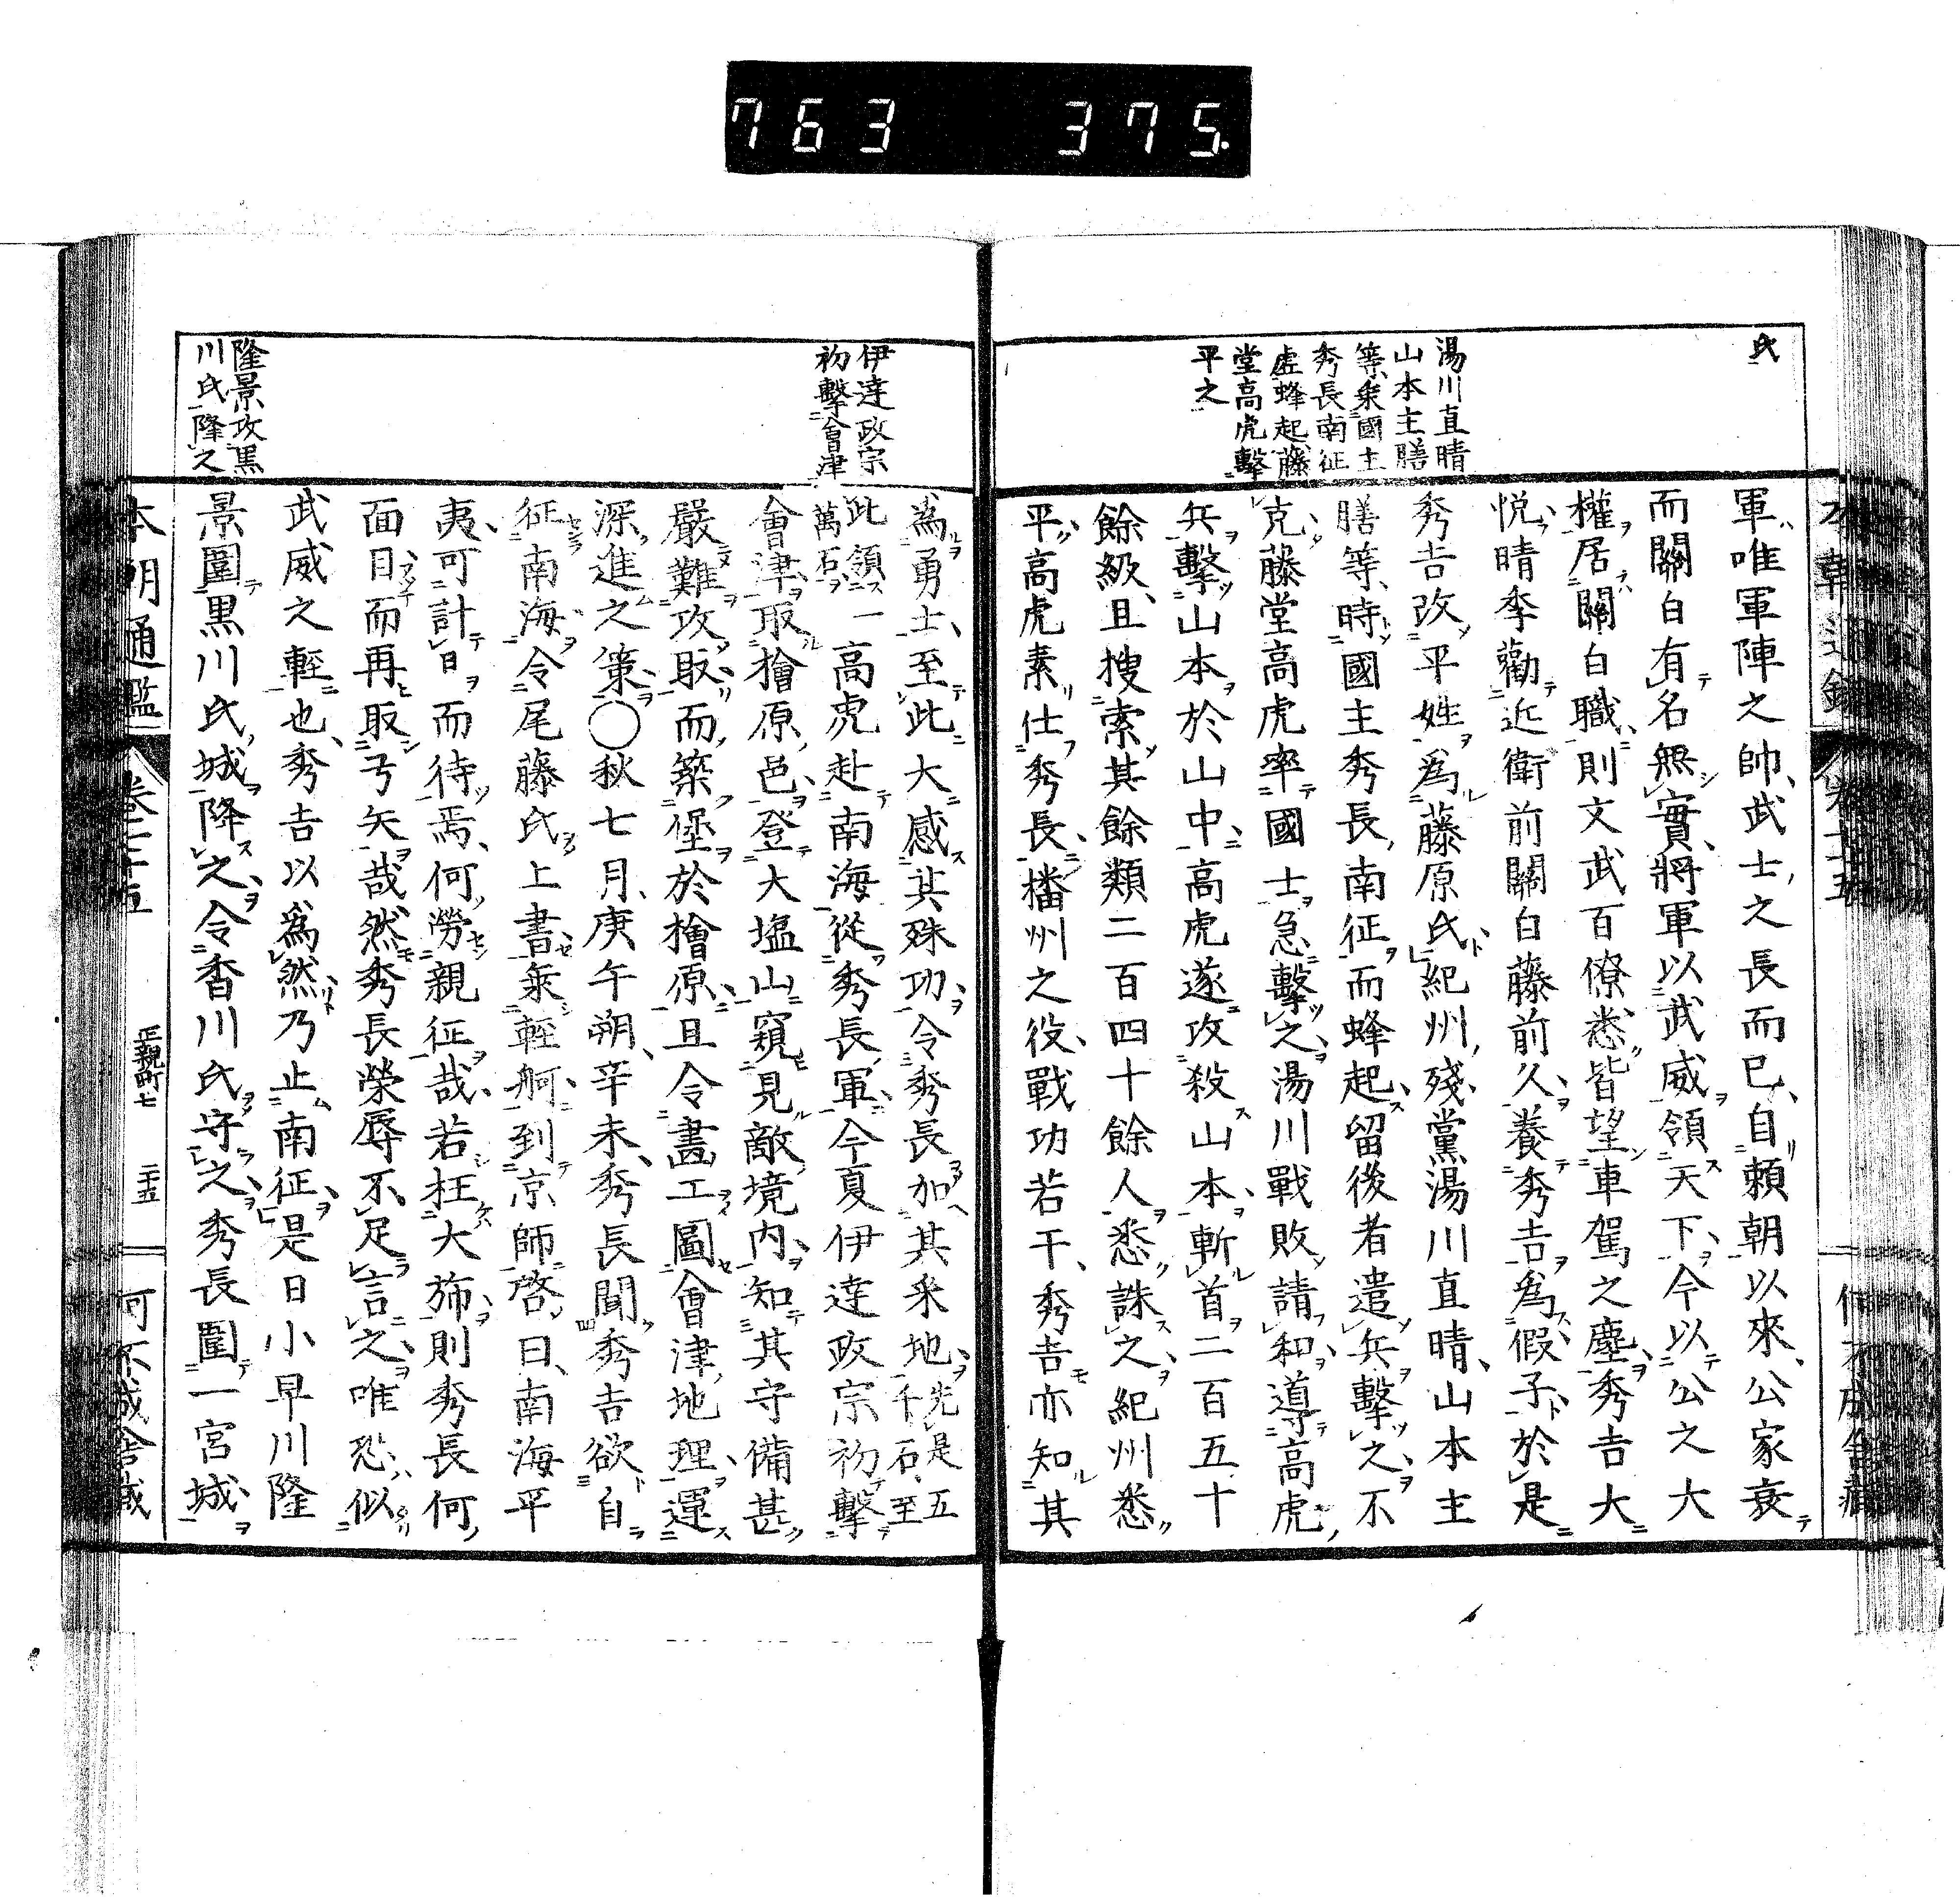 763 375.
氏
湯川直晴
山本主膳
等乗國主
秀長南征
虚蜂起藤
堂高虎擊
平之
軍唯軍陣之帥武士之長而已自頼朝以來公家衰
而關白有名無實將軍以武威領天下今以公之大
權居關白職則文武百僚悉皆望車駕之塵秀吉大
悦晴季勸近衛前關白藤前久養秀吉爲假子於是
秀吉改平姓爲藤原氏紀州殘黨湯川直晴山本主
膳等時國主秀長南征而蜂起留後者遣兵擊之不
克藤堂高虎率國士急擊之湯川戰敗請和導高虎
兵擊山本於山中高虎遂攻殺山本斬首二百五十
餘級且搜索其餘類二百四十餘人悉誅之紀州悉
平高虎素仕秀長播州之役戰功若干秀吉亦知其
伊達政宗
初擊會津
隆景攻黒
川氏降之
爲勇士至此大感其殊功令秀長加其釆地先是五千石至
此領一萬石高虎赴南海從秀長軍今夏伊達政宗初擊
會津取檜原邑登大塩山窺見敵境内知其守備甚
嚴難攻取而築堡於檜原且令畫工圖會津地理運
深進之策〇秋七月庚午朔辛未秀長聞秀吉欲自
征南海令尾藤氏上書乗輕舸到京師啓曰南海平
夷可計日而待焉何勞親征哉若枉大斾則秀長何
面目而再取弓矢哉然秀長榮辱不足言之唯恐似
武威之輕也秀吉以爲然乃止南征是日小早川隆
景圍黒川氏城降之令香川氏守之秀長圍一宮城
本朝通鑑
卷七十五
正親町七
二十五
何不成舍藏